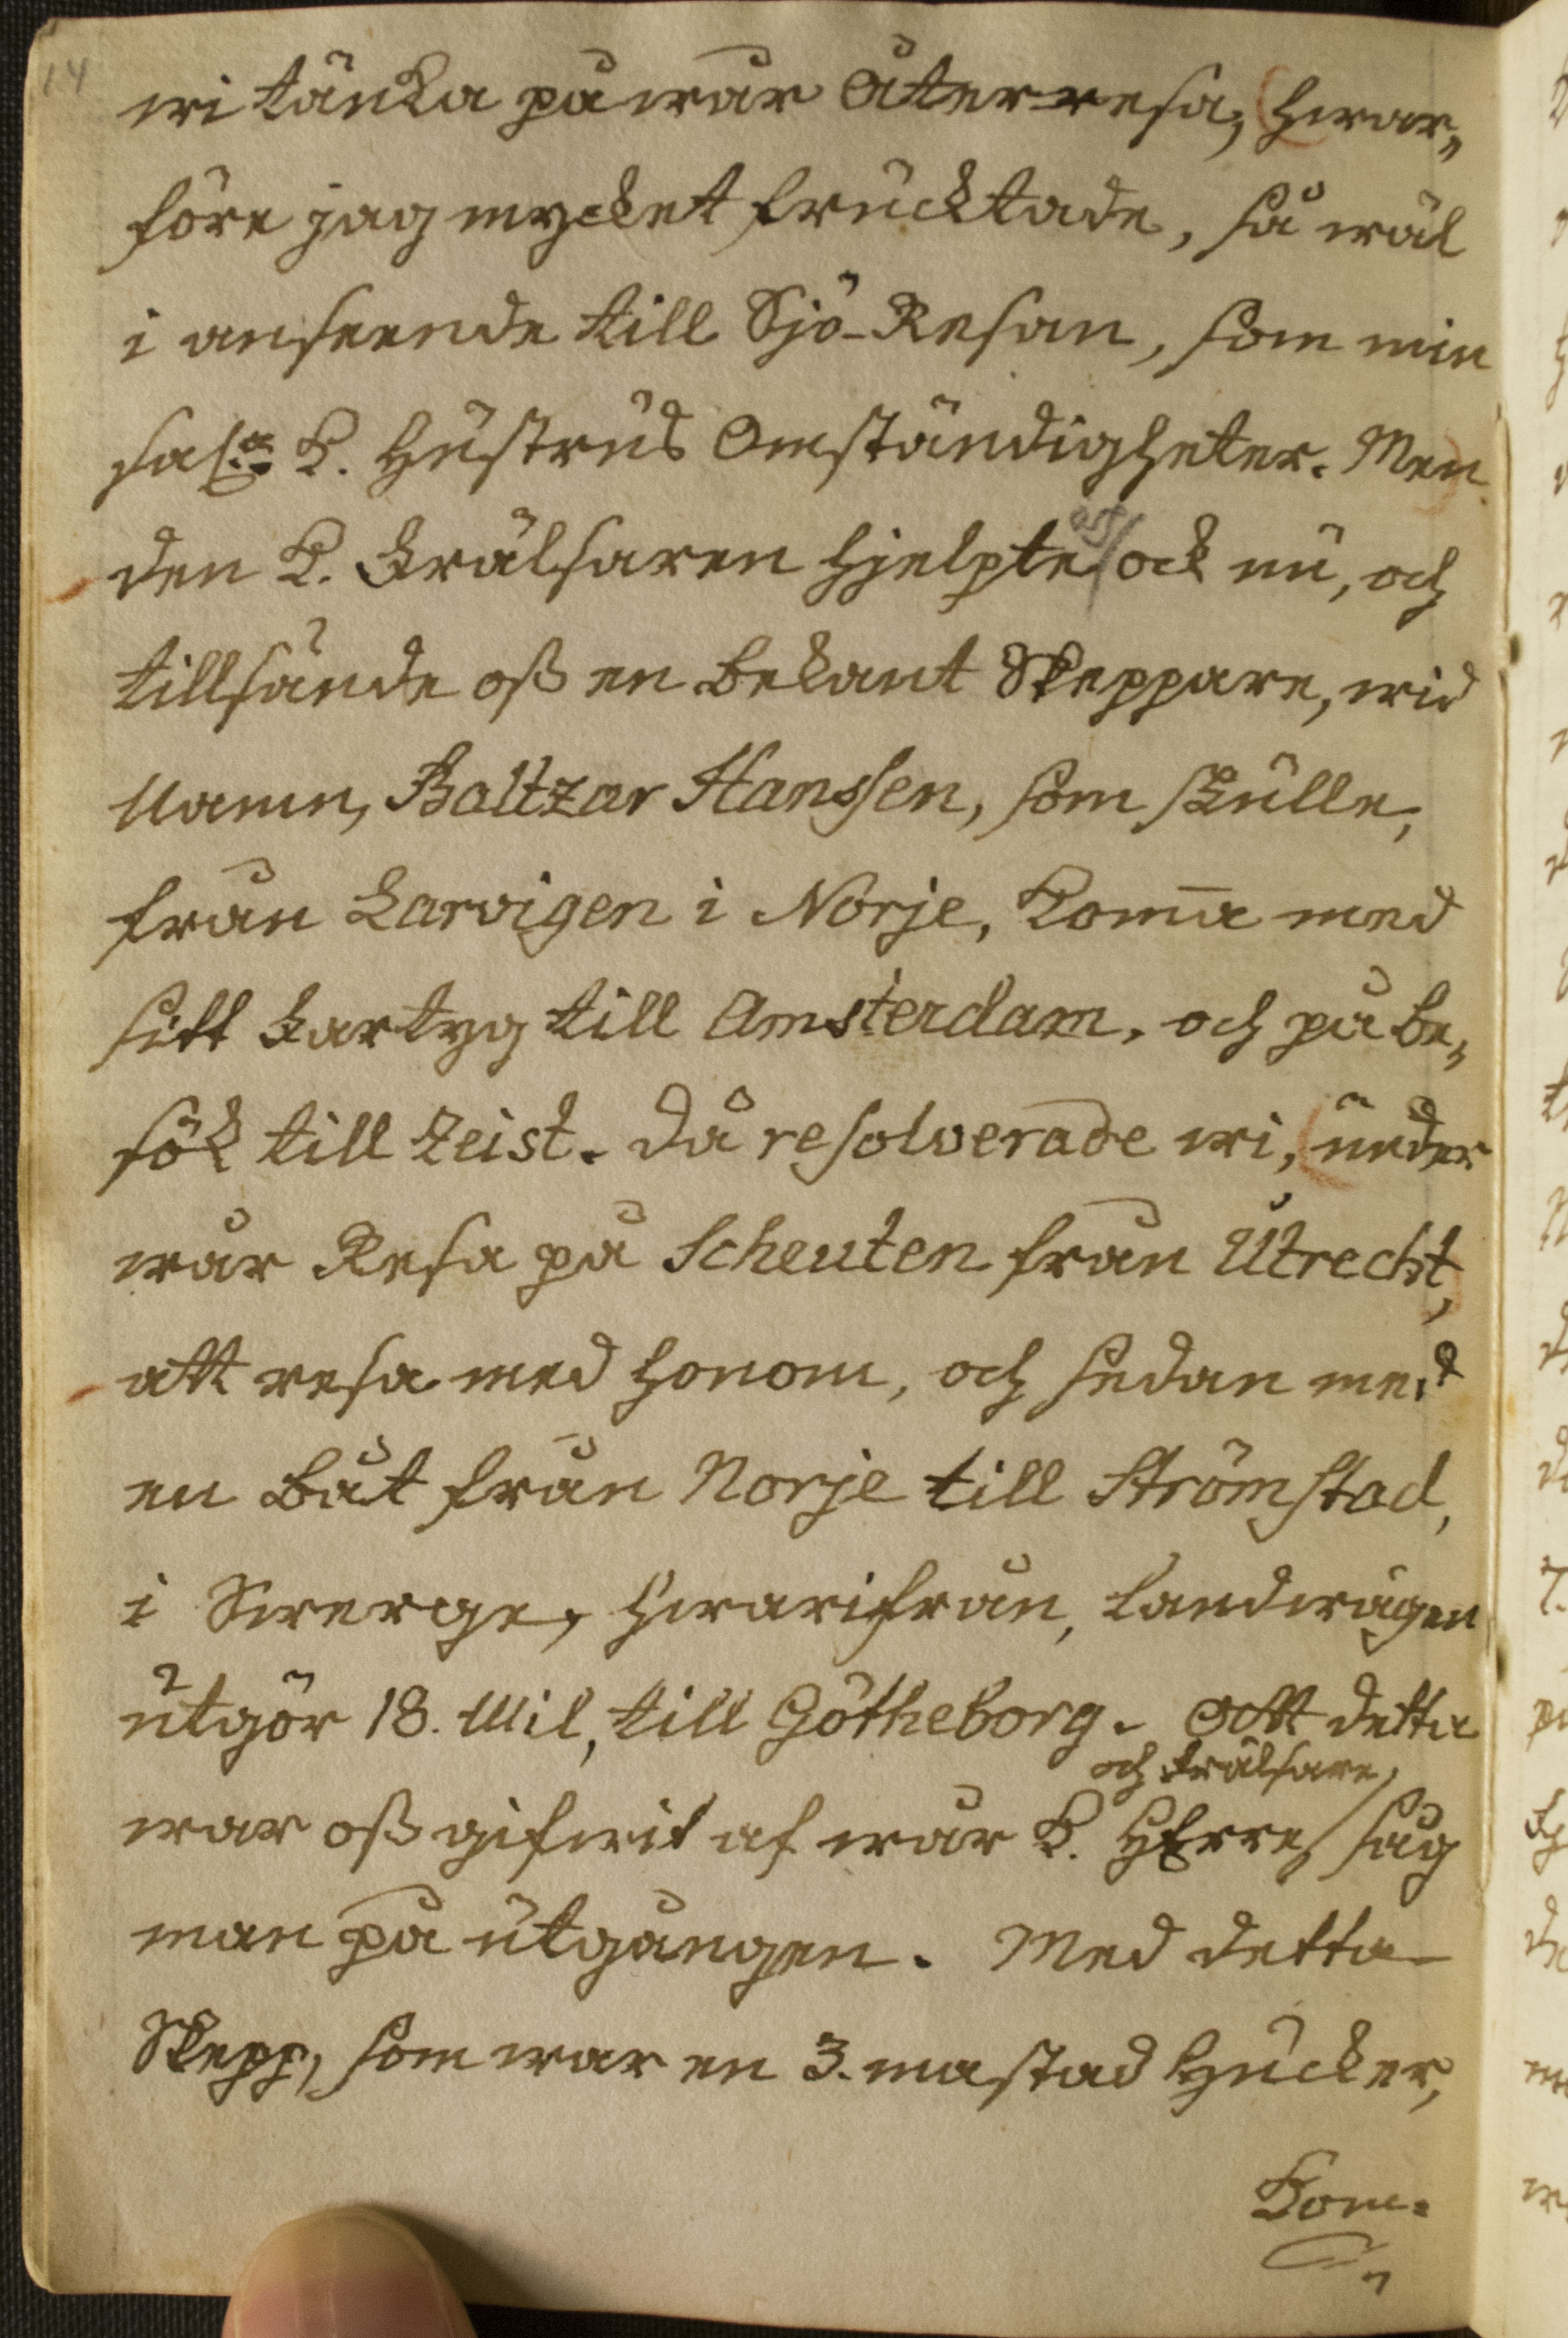 14
wi tänka på wår Återresa, hwar„
före jag mycket fruktade, så wäl
i anseende till Sjö-Resan, som min
sal:a K. Hustrus Omständigheter. Men
den K. Frälsaren hjelpte oss ock nu, och
tillsände oß en bekant Skeppare, wid
Namn, Baltzar Hanssen, som skulle,
från Larvigen i Norje, Kom̄a med
sitt Fartyg till Amsterdam, och på be„
sök till Zeist. Då resolverade wi, under
wår Resa på Scheuten från Utrecht,
att resa med honom, och sedan med
en Båt från Norje till Strömstad,
i Swerge, hwarifrån, Landwägen
utgör 18. Mil, till Götheborg. Att detta
och Frälsare,
war oß gifwit af wår K. HErre, såg
man på utgången. Med detta
Skepp, som war en 3. mastad Hucker,
Kom-